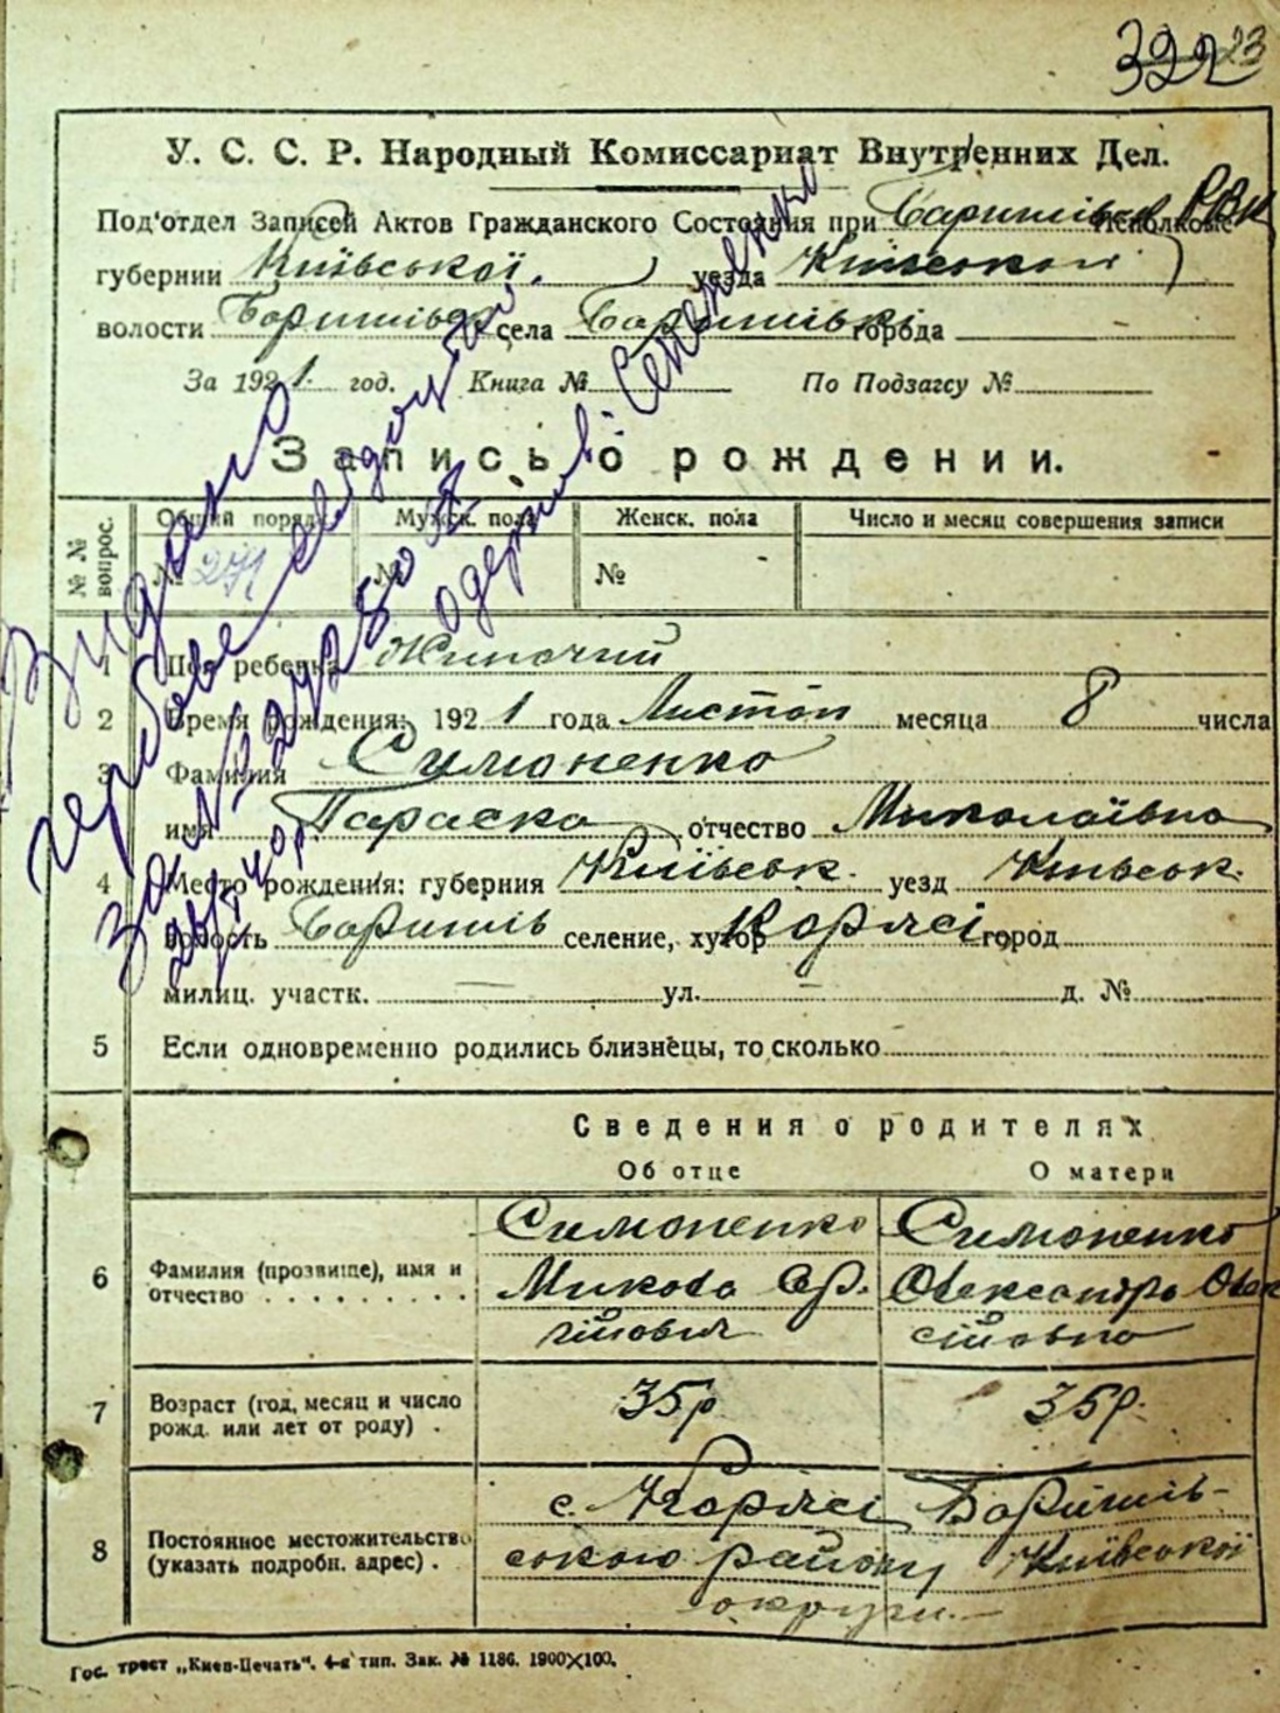 322 23
У. С. С. Р. Народный Комиссариат Внутренних Дел.
Под'отдел Записей Актов Гражданского Состояния при Баришівск Исполкоме РВК
губернии Київської уезда Київської
волости Баришівськ села Баришівкі города
За 1921 год. Книга № По Подзагсу №
Запись о рождении.
№ № вопрос. Общий порядк. Мужск. пола Женск. пола Число и месяц совершения записи
№ 271 № №
1 Пол ребенка Жиночий
2 Время рождения: 1921 года Листоп месяца 8 числа
3 Фамилия Симоненко
имя Параска отчество Миколаївна
4 Место рождения: губерния Київськ. уезд Київськ.
волость Баришів селение, хутор Коржі город
милиц. участк. ул. д. №
5 Если одновременно родились близнецы, то сколько
Сведения о родителях
Об отце О матери
6 Фамилия (прозвище), имя и отчество Симоненко Симоненко
Микола Олександра
7 Возраст (год, месяц и число рожд. или лет от роду) 35р 35р.
8 Постоянное местожительство (указать подробн. адрес) с. Коржі Баришів-
ського району Київської
округи.
Гос. трест „Киев-Печать“. 4-я тип. Зак. № 1186. 1900X100.
Видано
гербове свідоцтво
одержив: